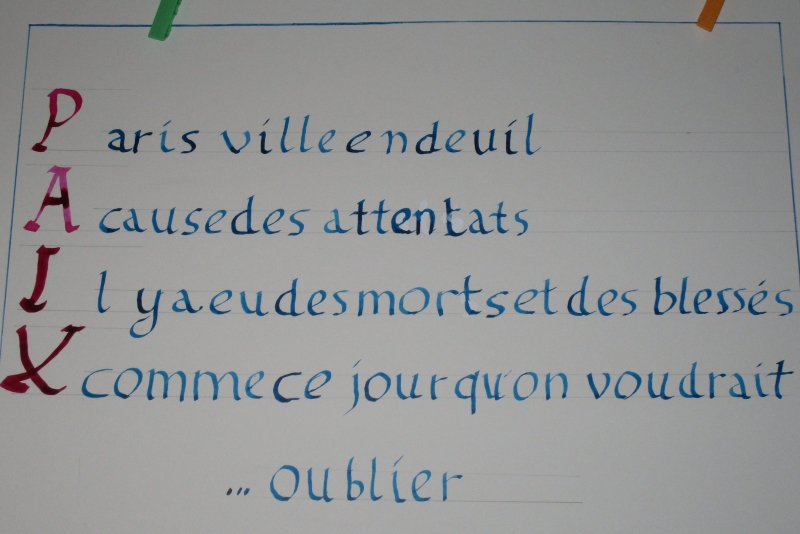 Paris ville en deuil
A cause des attentats
Il y a eu des morts et des blessés
X comme ce jour qu'on voudrait
... oublier